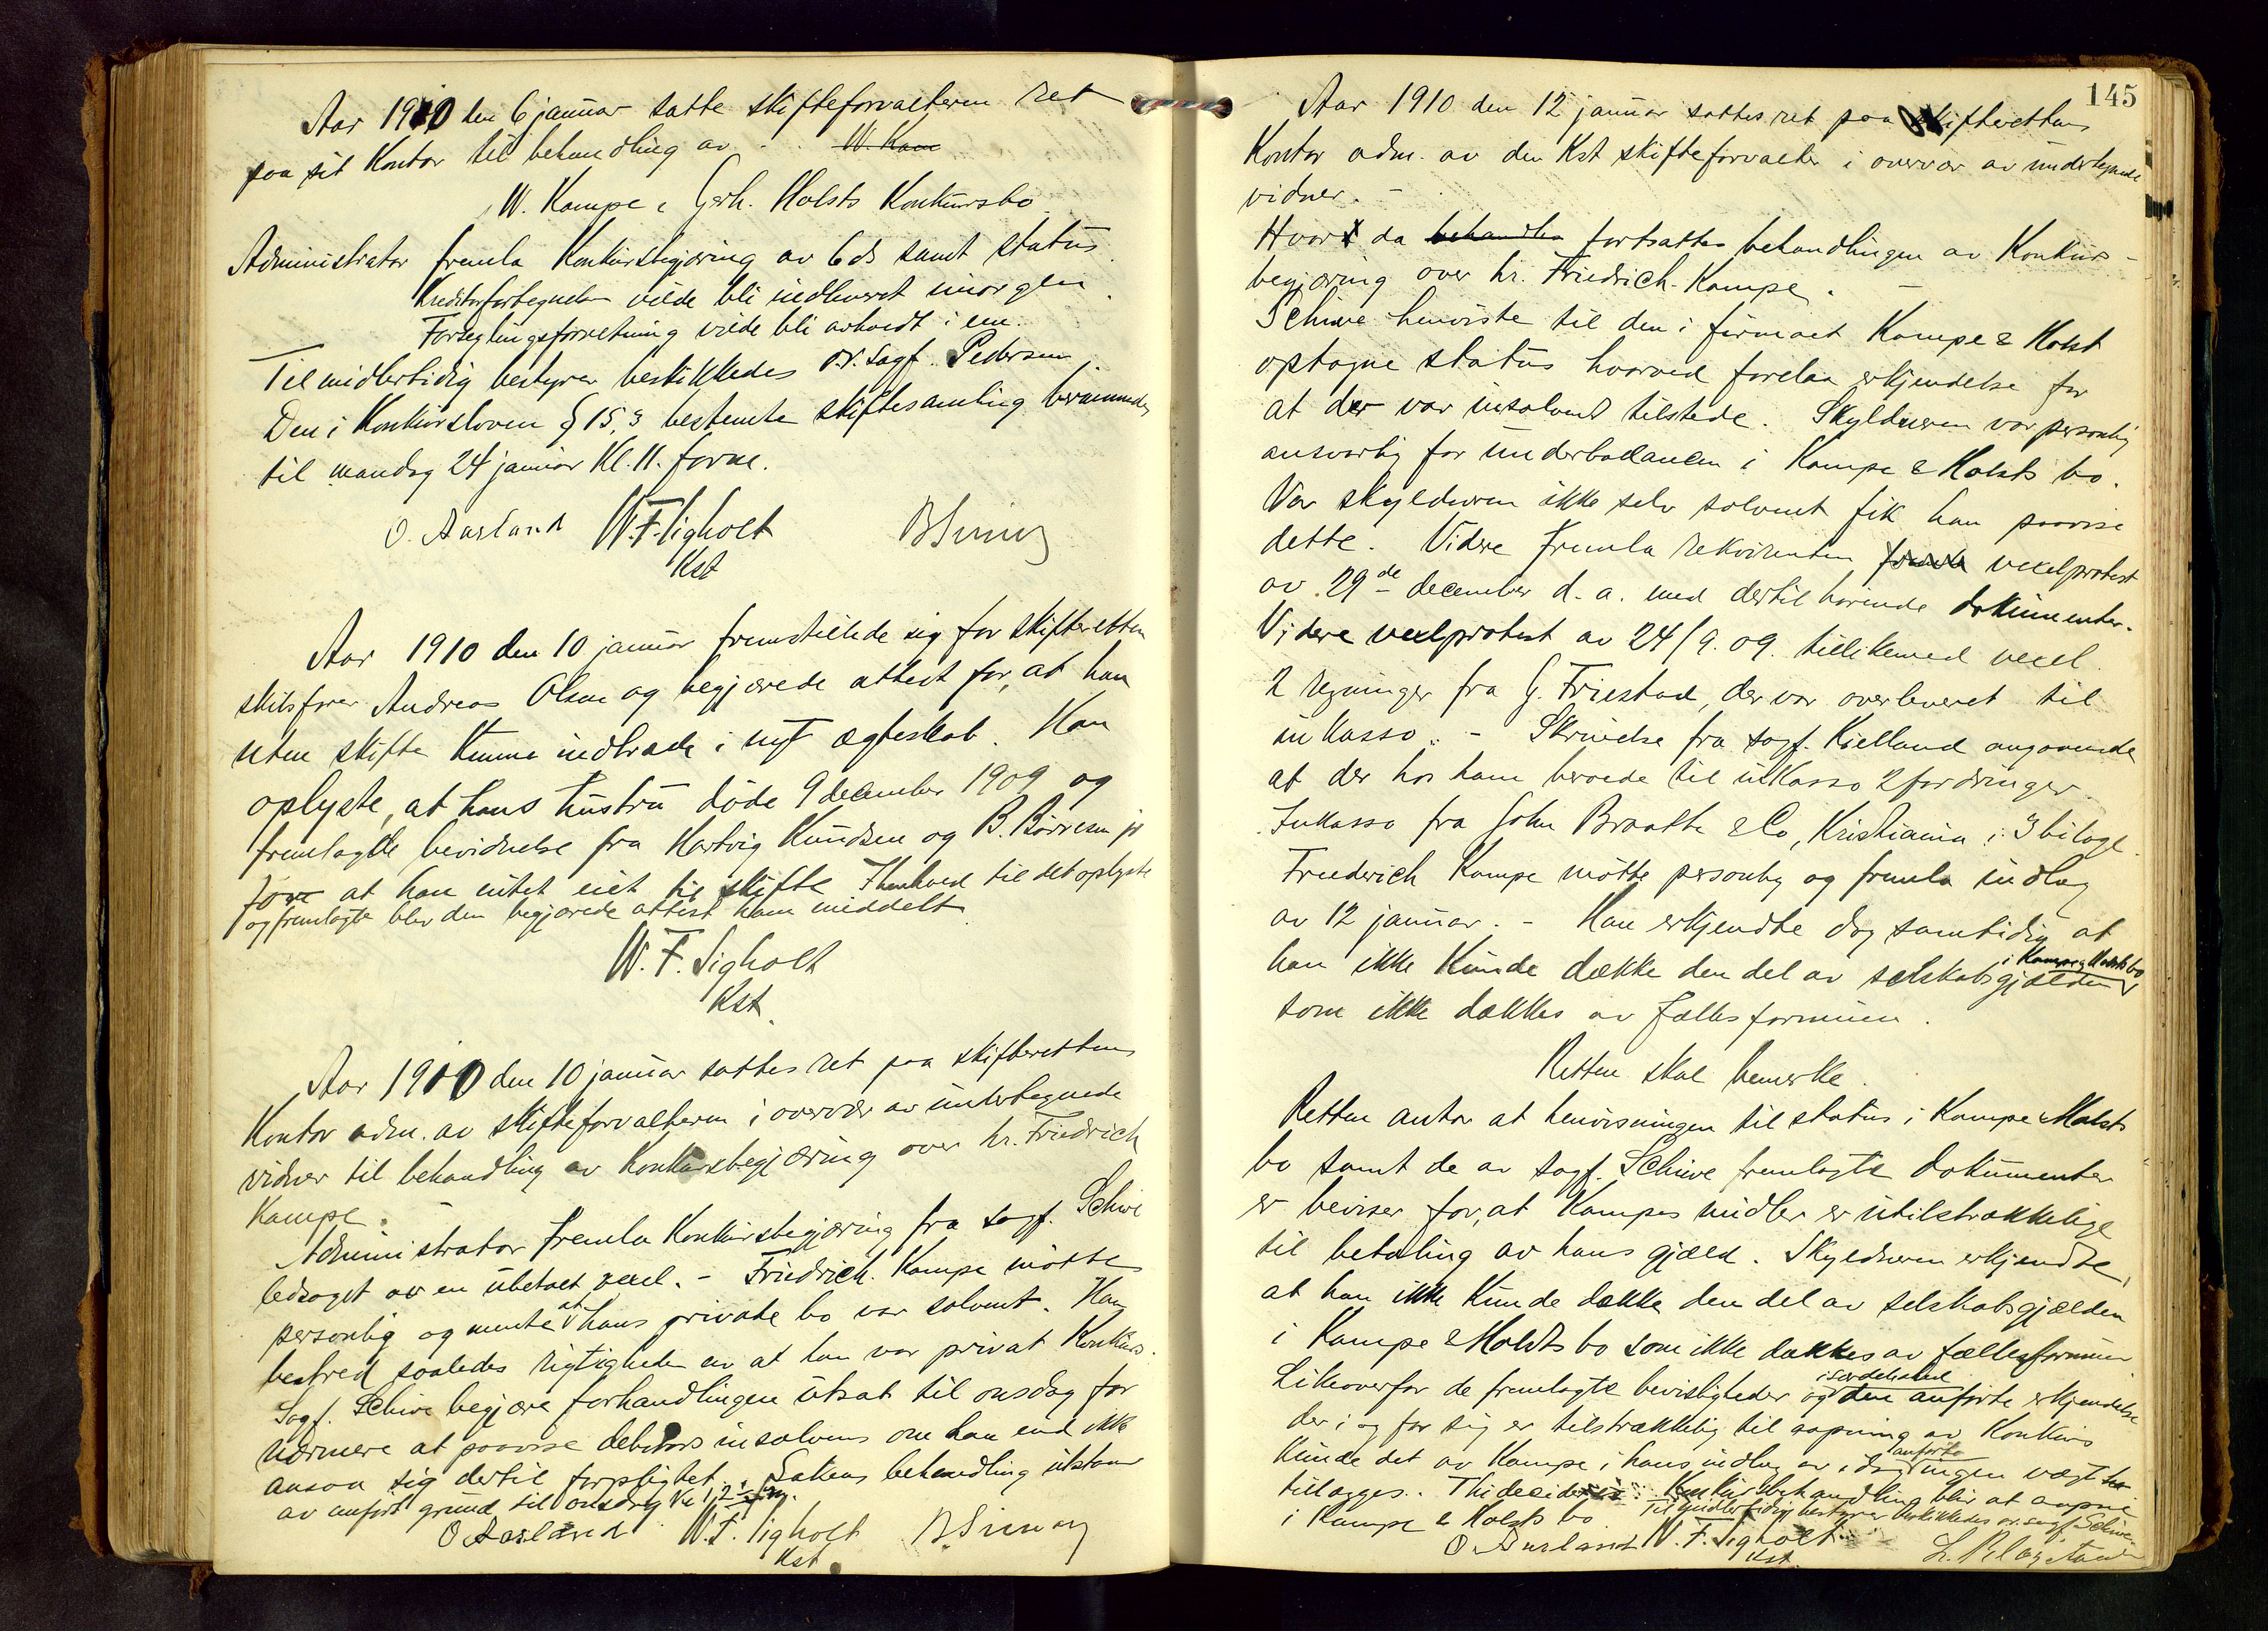 Aar 1910 den 6 januar satte skifteforvalteren ret
paa sit Kontor til behandling av . . W. Kam
W. Kampe & Gerh. Holsts Konkursbo
Administrator fremla Konkursbegjæring av 6 ds samt status.
Kreditorfortegnelse vilde bli indleveret imorgen.
Forseglingsforretning vilde bli avholdt i em.
Til midlertidig bestyrer beskikkedes o.r.sagf. Pedersen
Den i Konkursloven § 15,3 bestemte skiftesamling berammedes
til mandag 24 januar Kl. 11. form.
O. Aasland W.F. Sigholt
Kst
Aar 1910 den 10 januar fremstillede sig for skifteretten
skibsfører Andreas Olsen og begjærede attest for, at han
uten skifte kunne indtræde i nyt ægteskab. Han
oplyste, at hans hustru døde 9 december 1909 og
fremlagde bevidnelse fra Hartvig Knudsen og B. Børresen
for at han intet eiet til skifte I henhold til det oplyste
og fremlagte blev den begjærede attest ham middelt
W. F. Sigholt
Kst.
Aar 1910 den 10 januar sattes ret paa skifterettens
Kontor adm. av skifteforvalteren i overvær av undertegnede
vidner til behandling av Konkursbegjæring over hr. Friedrich
Kampe.
Administrator fremla Konkursbegjæring fra sagf. Schive
ledsaget av en ubetalt vexel. - Friedrich Kampe møtte
personlig og mente at hans private bo var solvent. Han
bestred saaledes rigtigheden av at han var privat Konkurs.
Sagf. Schive begjære forhandlingen utsat til onsdag for
nærmere at paavise debitors insolvens om han end ikke
ansaa sig dertil forpligtet. Sakens behandling utstaar
av anført grund til onsdag Kl. 12
O Aasland W.F. Sigholt
Kst
145
Aar 1910 den 12 januar sattes ret paa skifterettens
Kontor adm. av den Kst skifteforvalter i overvær av undertegnede
vidner. -
Hvor da behandles fortsattes behandlingen av Konkurs-
begjæring over hr. Friedrich Kampe. -
Schive henviste til den i firmaet Kampe & Holst
optagne status hvorved forelaa erkjendelse for
at der var insolvens tilstede. Skyldneren var personlig
ansvarlig for underballancen i Kampe & Holsts bo.
Var skyldneren ikke selv solvent fik han paavise
dette. Videre fremla rekvirenten vexelprotest
av 29de december d. a. med dertil hørende dokumenter.
Videre vexelprotest av 24/9. 09. tillikemed vexel.
2 regninger fra G. Friestad, der var overleveret til
inkasso. - Skrivelse fra sagf. Kielland angaaende
at der hos ham beroede til inkasso 2 fordringer.
Inkasso fra John Braathe & Co, Kristiania i 3 bilage.
Friederich Kampe møtte personlig og fremla indlæg
av 12 januar. - Han erkjendte dog samtidig at
han ikke kunde dække den del av selskabsgjælden i Kampe & Holsts bo
som ikke dækkes av fællesformuen.
Retten skal bemerke.
Retten antar at henvisningen til status i Kampe & Holsts
bo samt de av sagf. Schive fremlagte dokumenter
er beviser for, at Kampes midler er utilstrækkelige
til betaling av hans gjæld. Skyldneren erkjendte,
at han ikke kunde dække den del av selskabsgjælden
i Kampe & Holsts bo som ikke dækkes av fællesformuen
Likeoverfor de fremlagte bevisligheder og isærdeleshed den anførte erkjendelse
der i og for sig er tilstrækkelig til aapning av Konkurs
kunde det av Kampe i hans indlæg av idag anførte ingen vægt
tillægges. Thi decideres: Konkursbehandling blir at aapne
i Kampe & Holsts bo. Til midlertidig bestyrer beskikkedes o.r.sagf. Schive
O Aasland W. F. Sigholt
Kst.